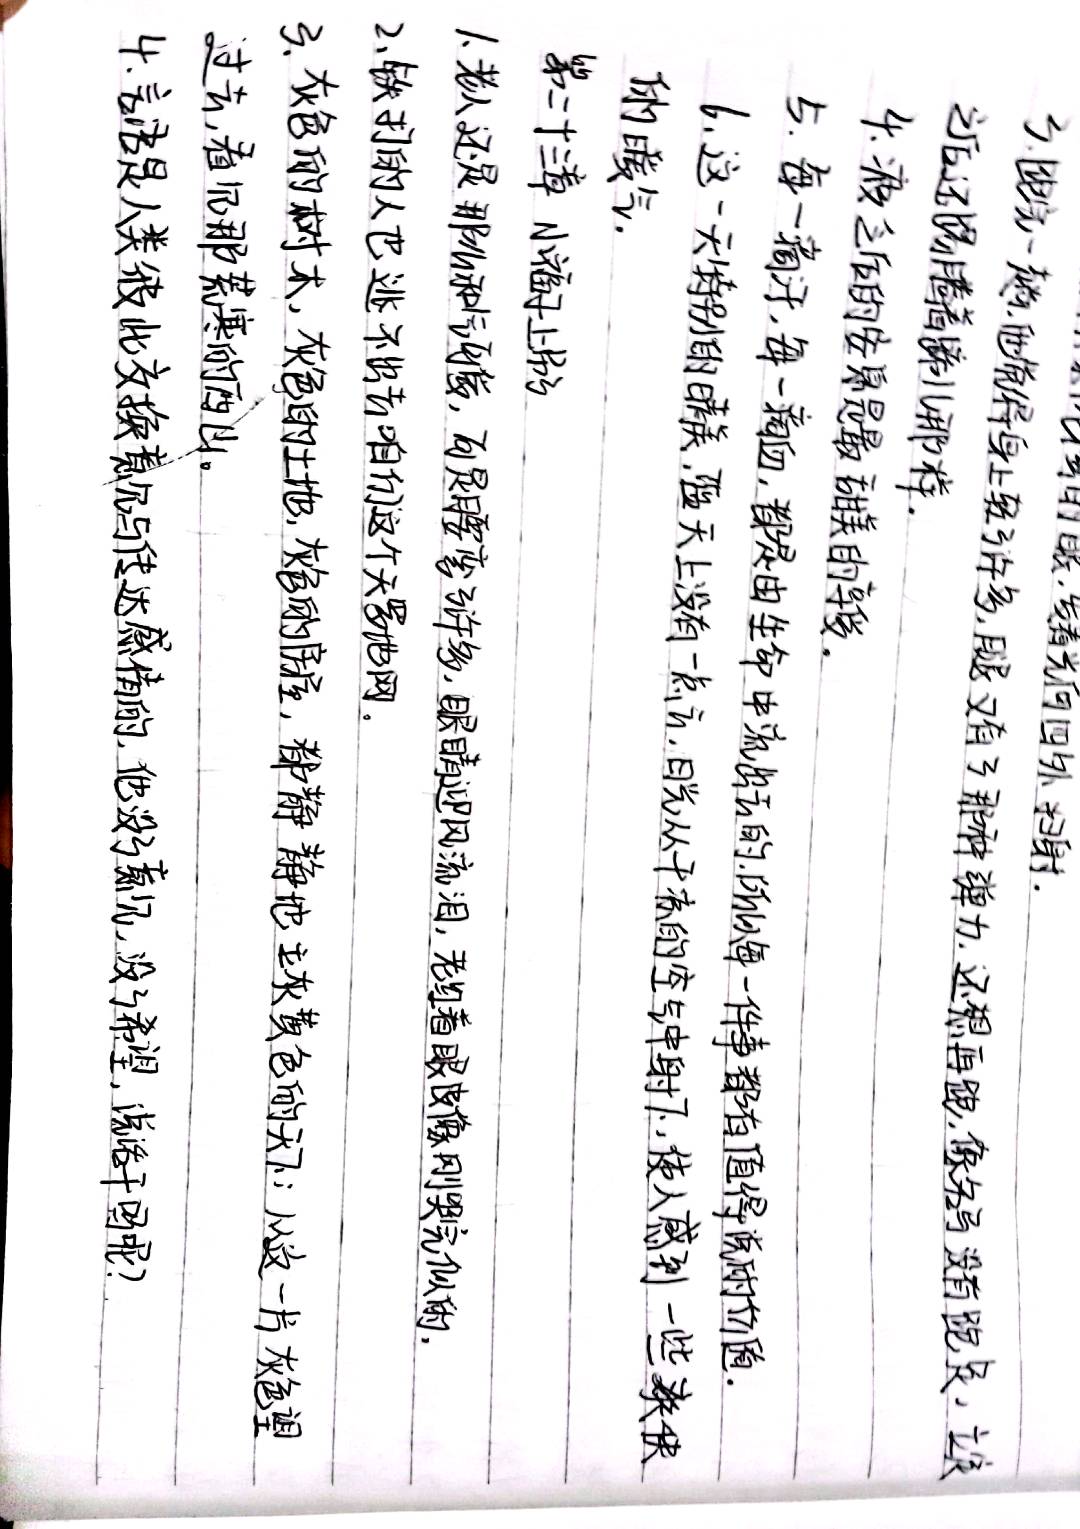 的眼,发着光向四外扫射.
3.跑完一趟,他觉得身上轻了许多,腿又有了那种弹力,还想再跑,像名马没有跑足,立定
之后还踢腾着蹄儿那样.
4.疲乏后的安息是最甜美的享受.
5.每一滴汗,每一滴血,都是由生命中流出去的,所以每一件事都有值得说的价值.
6.这一天特别的晴美,蓝天上没有一点云,日光从干凉的空气中射下,使人感到一些爽快
的暖气.
第二十三章 小福子上吊
1.老人还是那么和气可爱,可是瘦了许多,眼睛迎风流泪,老红着眼皮像刚哭完似的.
2.铁打的人也逃不出去咱们这个天罗地网.
3.灰色的树木,灰色的土地,灰色的房屋,都静静地立灰黄色的天下;从这一片灰色望
过去,看见那荒寒的西山。
4.言语是人类彼此交换意见与传达感情的,他没了意见,没了希望,说话干吗呢?